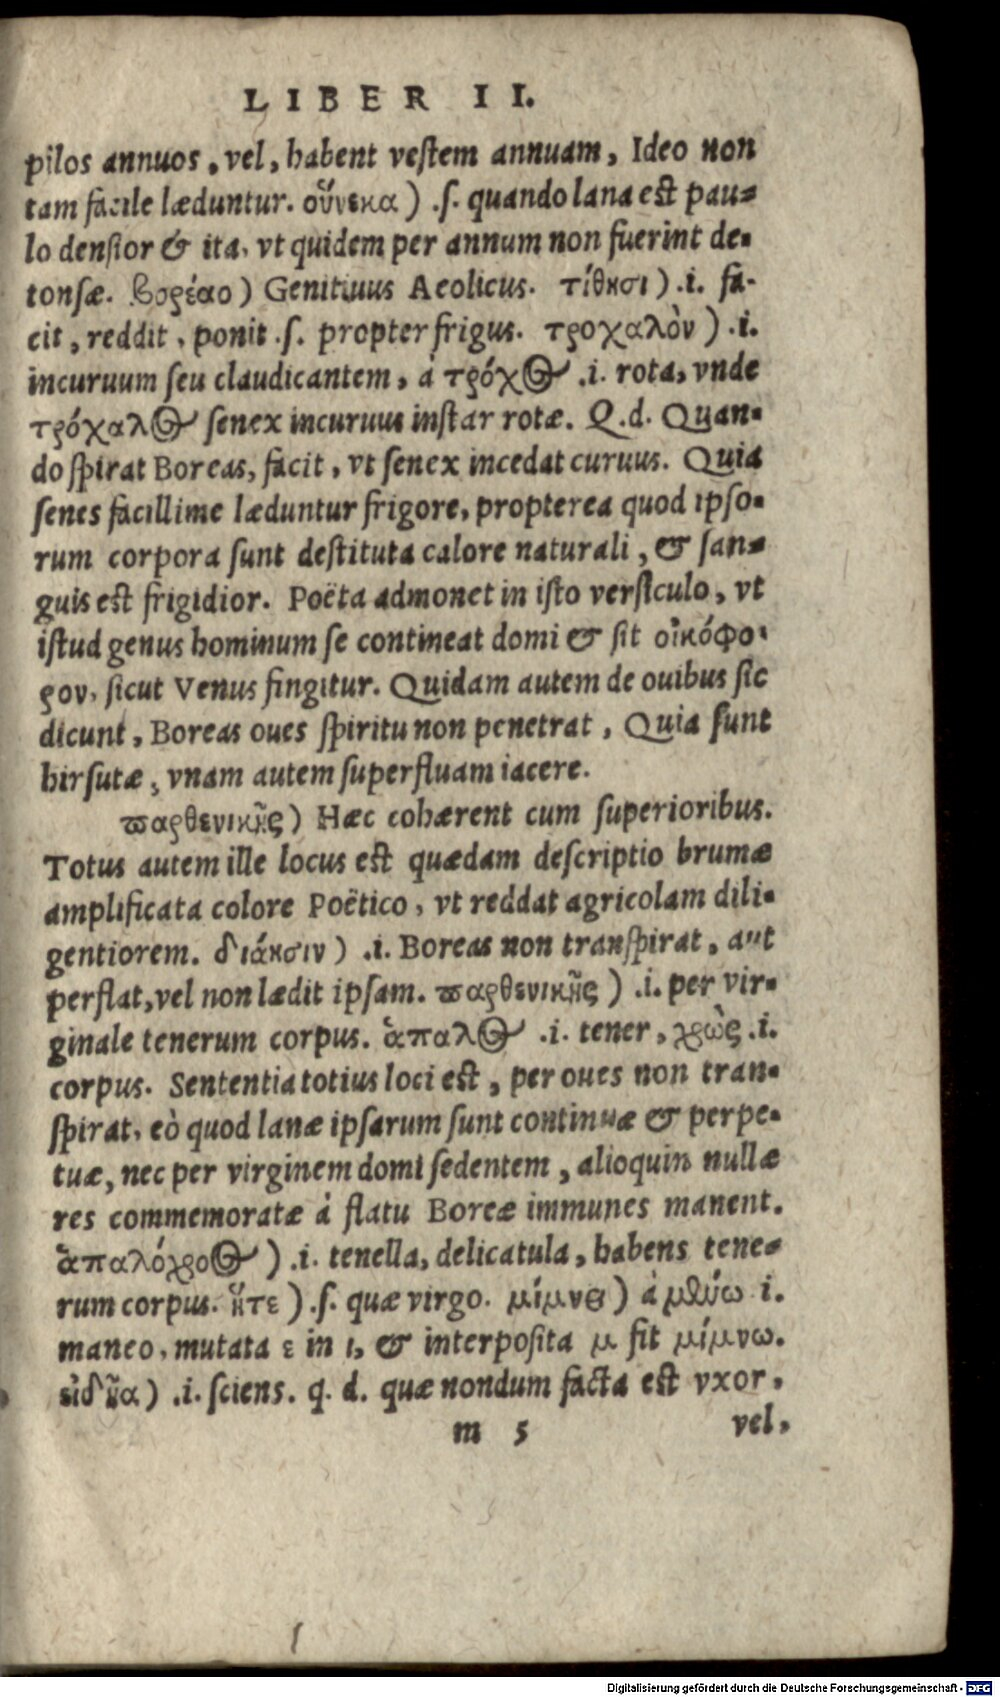 LIBER II.
pilos annuos, vel, habent veſtem annuam, Ideo non
tam facile læduntur. οὕνεκα) .ſ. quando lana eſt pau-
lo denſior & ita, vt quidem per annum non fuerint de-
tonſæ. βορέαο) Genitiuus Aeolicus. τίθησι) .i. fa-
cit, reddit, ponit .ſ. propter frigus. τροχαλὸν) .i.
incuruum ſeu claudicantem, à τρόχος .i. rota, vnde
τρόχαλος ſenex incuruus inſtar rotæ. Q.d. Quan-
do ſpirat Boreas, facit, vt ſenex incedat curuus. Quia
ſenes facillime læduntur frigore, propterea quod ipſo-
rum corpora ſunt deſtituta calore naturali, & ſan-
guis eſt frigidior. Poëta admonet in iſto verſiculo, vt
iſtud genus hominum ſe contineat domi & ſit οἰκόφο-
ρον, ſicut Venus fingitur. Quidam autem de ouibus ſic
dicunt, Boreas oues ſpiritu non penetrat, Quia ſunt
hirſutæ, vnam autem ſuperfluam iacere.
παρθενικῆς) Hæc cohærent cum ſuperioribus.
Totus autem ille locus eſt quædam deſcriptio brumæ
amplificata colore Poëtico, vt reddat agricolam dili-
gentiorem. διάησιν) .i. Boreas non tranſpirat, aut
perflat, vel non lædit ipſam. παρθενικῆς) .i. per vir-
ginale tenerum corpus. ἁπαλος .i. tener, χρὼς .i.
corpus. Sententia totius loci eſt, per oues non tran-
ſpirat, eò quod lanæ ipſarum ſunt continuæ & perpe-
tuæ, nec per virginem domi ſedentem, alioquin nullæ
res commemoratæ à flatu Boreæ immunes manent.
ἁπαλόχροος) .i. tenella, delicatula, habens tene-
rum corpus. ἥτε) .ſ. quæ virgo. μίμνει) à μενύω i.
maneo, mutata ε in ι, & interpoſita μ fit μίμνω.
εἰδυῖα) .i. ſciens. q. d. quæ nondum facta eſt vxor,
m 5 vel,
Digitalisierung gefördert durch die Deutsche Forschungsgemeinschaft - DFG